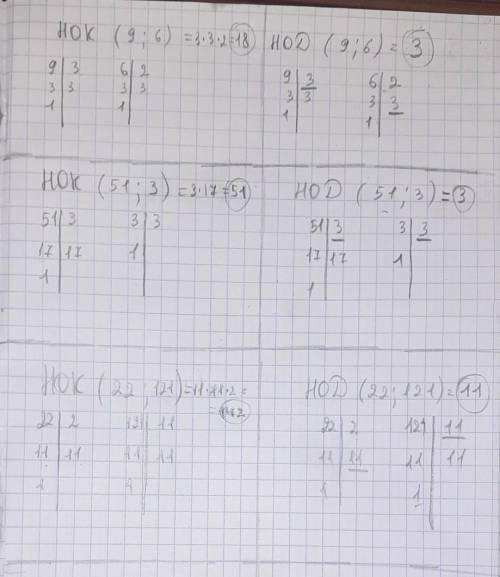 НОК (9; 6) = 3·3·2=18
9 | 3
3 | 3
1 |
6 | 2
3 | 3
1 |
НОD (9; 6) = 3
9 | 3
3 | 3
1 |
6 | 2
3 | 3
1 |
НОК (51; 3) = 3·17=51
51 | 3
17 | 17
1 |
3 | 3
1 |
НОD (51; 3) = 3
51 | 3
17 | 17
1 |
3 | 3
1 |
НОК (22; 121) = 11·11·2 =
22 | 2
11 | 11
1 |
121 | 11
11 | 11
1 |
НОD (22; 121) = 11
22 | 2
11 | 11
1 |
121 | 11
11 | 11
1 |